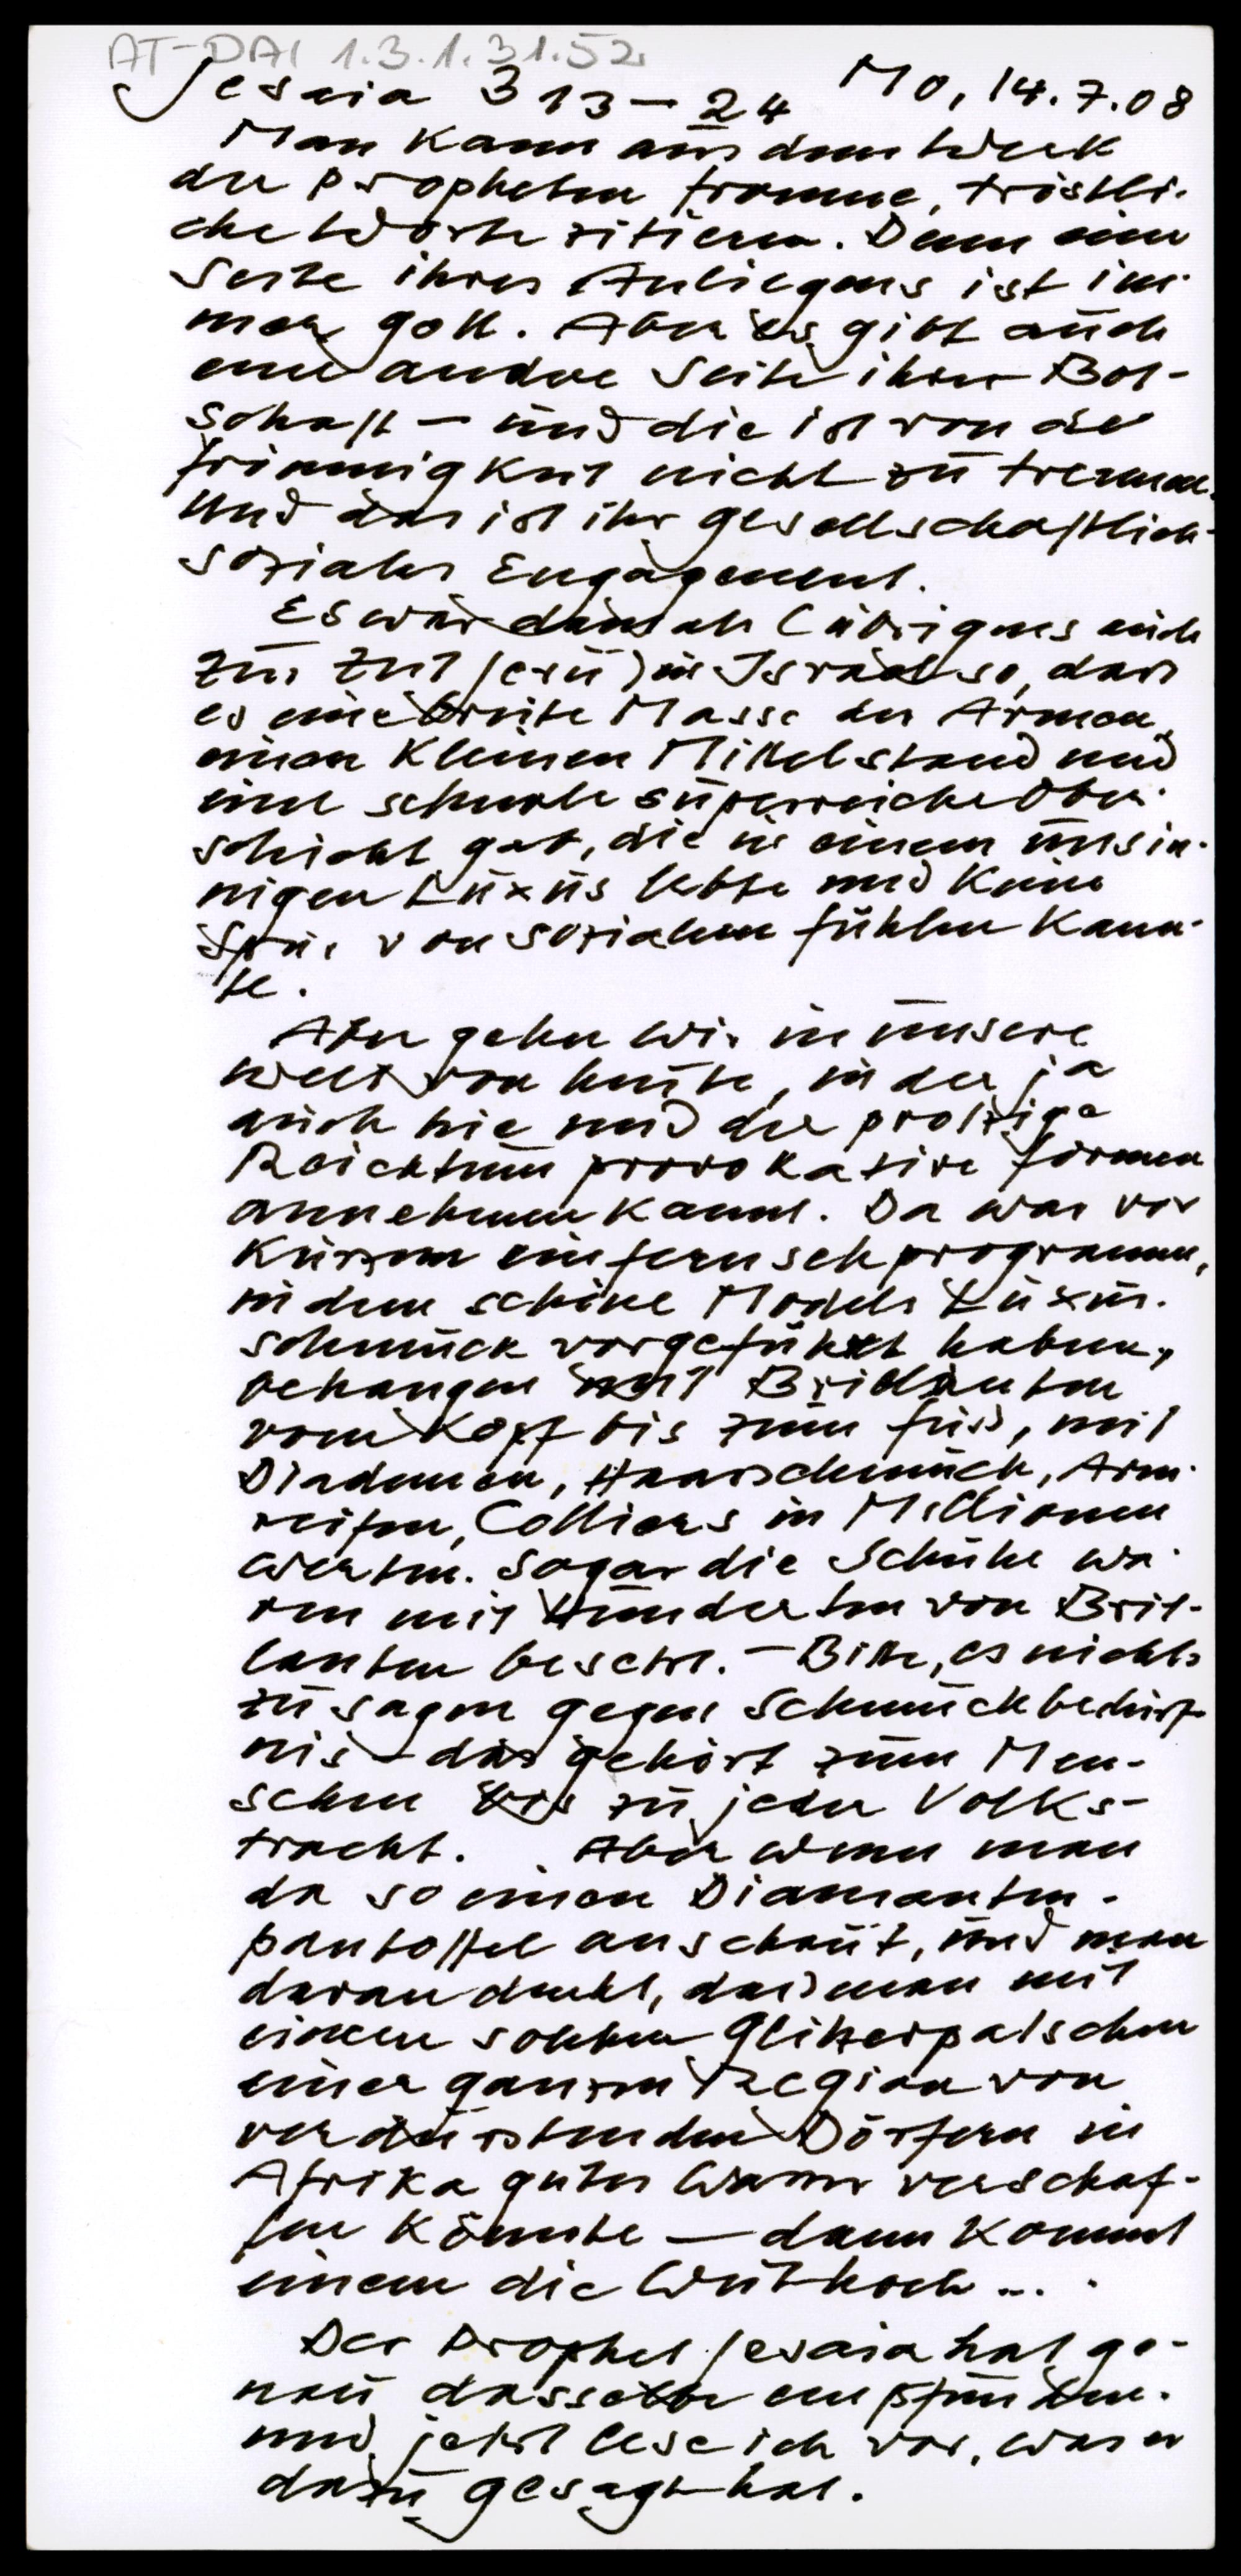 AT-DAI 1.3.1.31.52
Jesaia 3 13-24 Mo, 14.7.08
Man kann aus dem Werk
der Propheten fromme, tröstli-
che Worte zitieren. Denn eine
Seite ihres Anliegens ist im-
mer Gott. Aber es gibt auch
eine andere Seite ihrer Bot-
schaft – und die ist von der
Frömmigkeit nicht zu trennen.
Und das ist ihr gesellschaftlich-
soziales Engagement.
Es war damals (übrigens auch
zur Zeit Jesu) in Israel so, dass
es eine breite Masse der Armen,
einen kleinen Mittelstand und
eine schmale superreiche Ober-
schicht gab, die in einem unsin-
nigen Luxus lebte und keine
Spur von sozialem Fühlen kann-
te.
Aber gehen wir in unsere
Welt von heute, in der ja
auch hie und da protzige
Reichtum provokative Formen
annehmen kann. Da war vor
kurzem ein Fernsehprogramm,
in dem schöne Models Luxus-
schmuck vorgeführt haben,
behangen mit Brillanten
vom Kopf bis zum Fuss, mit
Diademen, Haarschmuck, Arm-
reifen, Colliers in Millionen
werten. Sogar die Schuhe wa-
ren mit Hunderten von Bril-
lanten besetzt. – Bitte, es nichts
zu sagen gegen Schmuckbedürf-
nis – das gehört zum Men-
schen bis zu jeder Volks-
tracht. Aber wenn man
da so einen Diamanten-
pantoffel anschaut, und man
daran denkt, dass man mit
einem solchen Glitzerpatschen
einer ganzen Region von
verdurstenden Dörfern in
Afrika gutes Wasser verschaf-
fen könnte – dann kommt
einem die Wut hoch ...
Der Prophet Jesaia hat ge-
nau dasselbe empfunden.
und jetzt lese ich vor, was er
dazu gesagt hat.